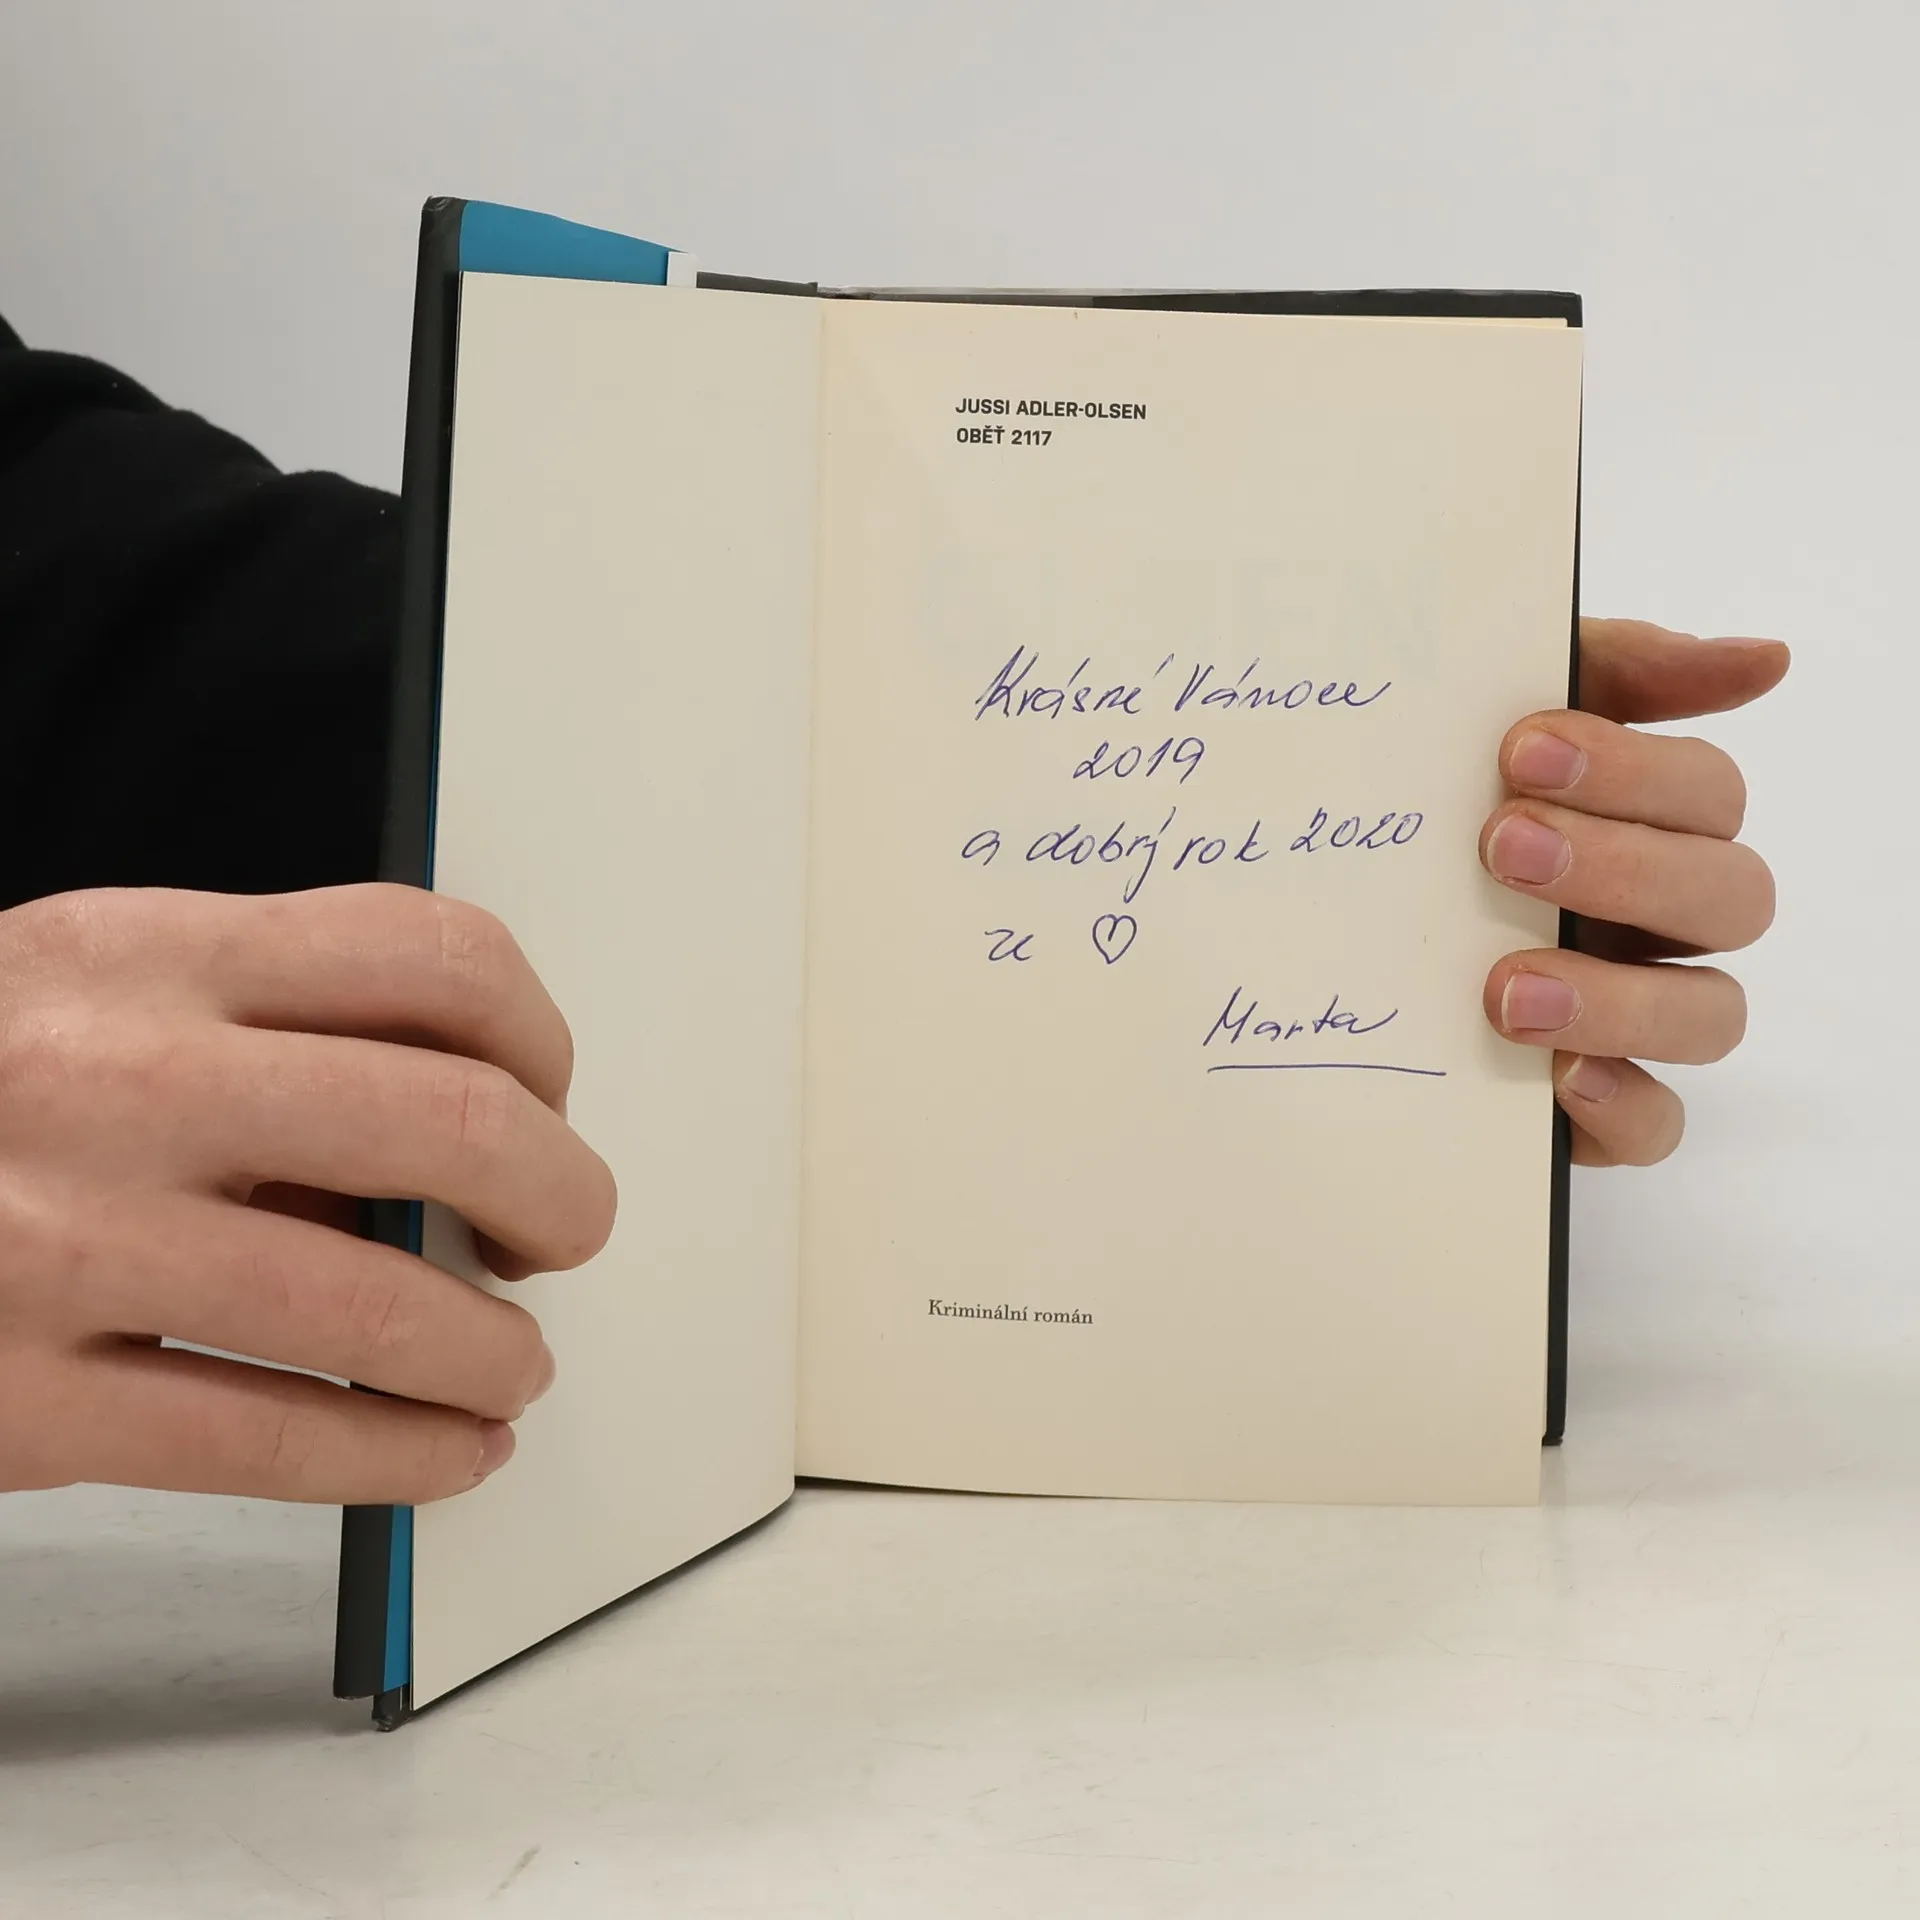 JUSSI ADLER-OLSEN
OBĚŤ 2117
Krásné Vánoce
2019
a dobrý rok 2020
ze ♡
Marta
Kriminální román